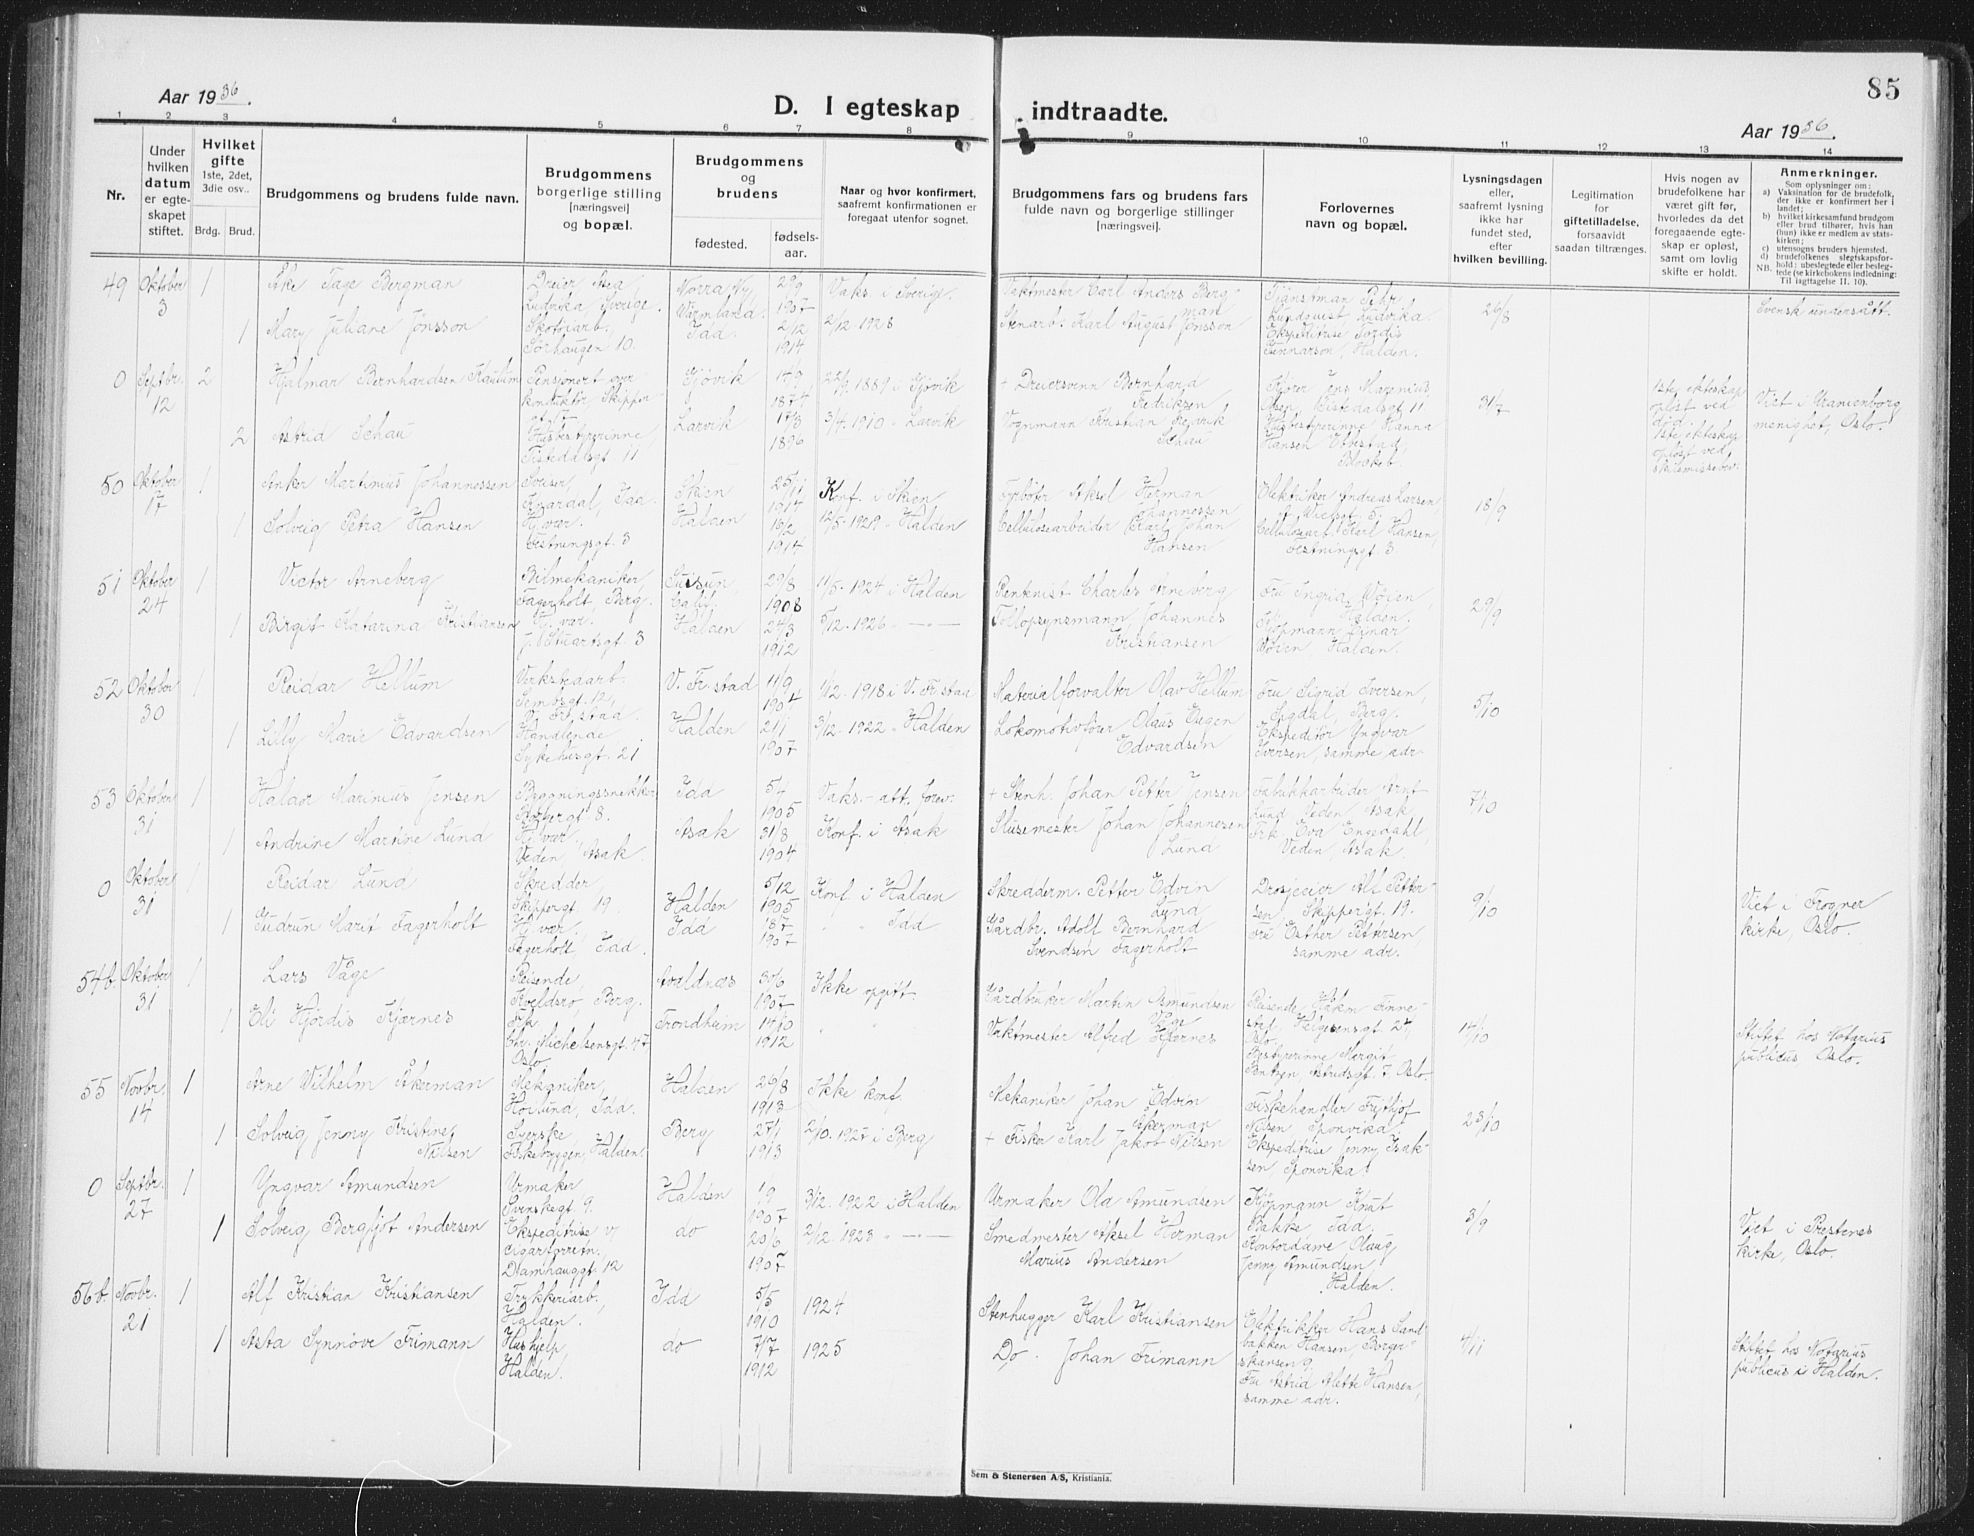 Aar 1936.
D. I egteskap indtraadte.
85
Aar 1936.
1 2 3 4 5 6 7 8 9 10 11 12 13 14
Nr.
Under hvilken datum er egteskapet stiftet.
Hvilket gifte 1ste, 2det, 3die osv..
Brdg. Brud.
Brudgommens og brudens fulde navn.
Brudgommens borgerlige stilling [næringsvei] og bopæl.
Brudgommens og brudens
fødested. fødselsaar.
Naar og hvor konfirmert, saafremt konfirmationen er foregaat utenfor sognet.
Brudgommens fars og brudens fars fulde navn og borgerlige stillinger [næringsvei].
Forlovernes navn og bopæl.
Lysningsdagen eller, saafremt lysning ikke har fundet sted, efter hvilken bevilling.
Legitimation for giftetilladelse, forsaavidt saadan tiltrænges.
Hvis nogen av brudefolkene har været gift før, hvorledes da det foregaaende egteskap er opløst, samt om lovlig skifte er holdt.
Anmerkninger.
Som oplysninger om:
a) Vaksination for de brudefolk, der ikke er konfirmert her i landet;
b) hvilket kirkesamfund brudgom eller brud tilhører, hvis han (hun) ikke er medlem av statskirken;
c) utensogns bruders hjemsted.
d) brudefolkenes slegtskapsforhold: ubeslegtede eller beslegtede (se kirkebokens indledning: Til iagttagelse II. 10).
NB.
49 Oktober 3 1 Åke Tage Bergman Dreier Ludvika Sverige. Norra Ny Värmland. 29/9 1907 Vaks. i Sverige. Vaktmester Carl Anders Bergman Tjänstman Pehr Lundquist Ludvika. 26/8 Svensk undersått.
1 Mary Juliane Jonsson Skotøiarb. Sørhaugen 10. Idd. 2/12 1914 2/12 1928 Stenarb. Karl August Jonsson Ekspeditrise Tordis Gunnarson, Halden.
0 Septbr. 12 2 Hjalmar Bernhardsen Kaulum Pensjonert overkonduktør Skippergt. 17 Gjøvik 14/9 1874 22/9 1889 i Gjøvik + Dreiersvenn Bernhard Fredriksen Kjører Jens Marenius Olsen, Tistedalsgt 11 31/7 1ste ekteskap opløst ved død. Viet i Uranienborg menighet, Oslo.
2 Astrid Schau Husbestyrerinne, Tistedalsgt 11 Larvik 17/3 1896 3/4 1910 - Larvik Vognmann Kristian Schau Husbestyrerinne Hanna Hansen 1ste ekteskap opløst ved skilsmissebev.
50 Oktober 17 1 Anker Martinius Johannessen Sveiser, Knardal, Idd. Skien 25/11 1914 Konf. i Skien Fyrbøter Aksel Herman Johannessen Elektriker Andreas Larsen, Wielsgt 5. 18/9
1 Solveig Petra Hansen Hj. vær. Festningsgt. 3 Halden 16/2 1914 12/5 1929 - Halden Cellulosearbeider Karl Johan Hansen Cellulosearb. Karl Hansen, Festningsgt 3
51 Oktober 24 1 Victor Arneberg Bilmekaniker, Fagerholt, Berg. 29/8 1908 11/5. 1924 i Halden Charles Arneberg Fru Ingrid Vøien, Halden. 29/9
1 Birgit Katarina Kristiansen Hj. vær. J. Stuartsgt. 3 Halden 24/3 1912 5/12. 1926 - Tollopsynsmann Johannes Kristiansen Kjøpmann Einar Vøien, Halden.
52 Oktober 30 1 Reidar Hellum Verkstedarb. Sembsgt. 12, Fr.stad. V. Fr. stad 11/9 1904 1/12. 1918 i V. Fr.stad Materialforvalter Olav Hellum Fru Sigrid Iversen, Sigdal, Berg. 5/10
1 Lilly Marie Edvardsen Handlende Sykehusgt. 21 Halden 21/1 1907 3/12. 1922 - Halden Lokomotivfører Olaus Eugen Edvardsen Ekspeditør Yngvar Iversen, samme adr.
53 Oktober 31 1 Haldor Marinius Jensen Bygningssnekker, 8. Idd 5/4 1905 Vaks.-att. forev. + Stenh. Johan Petter Jensen Fabrikkarbeider Arnt Lund Veden Asak 7/10
1 Andrine Martine Lund Hj. vær. Veden, Asak. Asak 31/8 1904 Konf. i Asak Slusemester Johan Johannesen Lund Frk. Eva Engedahl, Veden, Asak.
0 Oktober 31 1 Reidar Lund Skredder, Skippergt. 19 Halden 5/12 1905 Konf. i Halden Skredderm. Petter Edvin Lund Drosjeeier Alf Pettersen, Skippergt. 19. 9/10 Viet i Frogner kirke, Oslo.
1 Gudrun Marit Fagerholt Hj. vær. Fagerholt, Idd. Idd 18/7 1907 " " Idd Gårdbr. Adolf Bernhard Svendsen Fagerholt Fru Esther Pettersen, samme adr.
54b. Oktober 31 1 Lars Våge Reisende, Kveldsro, Berg. Avaldnæs 30/6 1907 Ikke opgitt Gårdbruker Martin Osmundsen Våge Reisende Håkon Finne Helgesensgt 24, Oslo 14/10 Stiftet hos Notarius publicus, Oslo.
1 Eli Hjørdis Kjærnes Frk Chr. Michelsensgt. 47 Oslo. Trondheim 14/10 1912 " " Vaktmester Alfred Kjærnes Bestyrerinne Mergit Bentzen, Astridsgt. 7, Oslo.
55 Novbr. 14 1 Arne Wilhelm Åkerman Mekaniker, Høilund, Idd. Halden 26/8 1913 Ikke konf. Mekaniker Johan Edvin Åkerman Fiskehandler Fritjof Nilsen Sponvika 23/10
1 Solveig Jenny Kristine Nilsen Syerske, Fiskebryggen, Halden. Berg 27/1 1913 2/10. 1927 i Berg + Fisker Karl Jakob Nilsen Ekspeditrise Jenny Isaksen, Sponvika.
0 Septbr. 27 1 Yngvar Amundsen Urmaker Svenskegt. 9. Halden 1/9 1907 3/12. 1922 i Halden Urmaker Olaf Amundsen Kjøpmann Knut Bakke, Idd. 3/9 Viet i Prestenes kirke, Oslo.
1 Solveig Bergljot Andersen Ekspeditrise v/ cigarforretn. Damhauggt 12 do 20/6 1907 2/12. 1923 " Smedmester Aksel Herman Marius Andersen Kontordame Olaug Jenny Amundsen, Halden.
56b. Novbr. 21 1 Alf Kristian Kristiansen Trykkeriarb., Halden. Idd 5/5 1910 1924 Stenhugger Karl Kristiansen Elektrikker Hans Sandbakken Hansen, Borgerskansen 9. 4/11 Stiftet hos Notarius publicus i Halden.
1 Asta Synnøve Frimann Hushjelp, Halden. do 7/7 1912 1925 Do. Johan Frimann Fru Astrid Alette Hansen, samme adr.
Sem & Stenersen A/S, Kristiania.